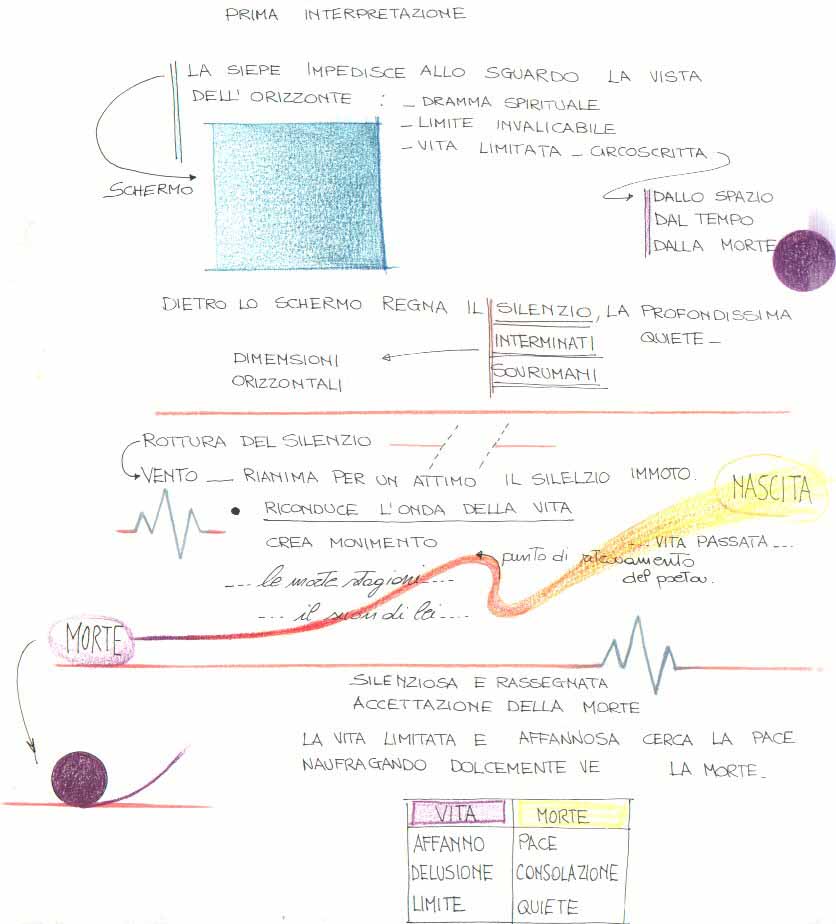 PRIMA INTERPRETAZIONE
LA SIEPE IMPEDISCE ALLO SGUARDO LA VISTA
DELL' ORIZZONTE : - DRAMMA SPIRITUALE
- LIMITE INVALICABILE
- VITA LIMITATA - CIRCOSCRITTA
SCHERMO
DALLO SPAZIO
DAL TEMPO
DALLA MORTE
DIETRO LO SCHERMO REGNA IL SILENZIO, LA PROFONDISSIMA
INTERMINATI QUIETE -
SOVRUMANI
DIMENSIONI
ORIZZONTALI
ROTTURA DEL SILENZIO
VENTO - RIANIMA PER UN ATTIMO IL SILELZIO IMMOTO.
NASCITA
• RICONDUCE L'ONDA DELLA VITA
CREA MOVIMENTO
--- VITA PASSATA ---
punto di
del poeta.
--- le morte stagioni ---
--- il suon di lei ---
MORTE
SILENZIOSA E RASSEGNATA
ACCETTAZIONE DELLA MORTE
LA VITA LIMITATA E AFFANNOSA CERCA LA PACE
NAUFRAGANDO DOLCEMENTE VE LA MORTE -
VITA MORTE
AFFANNO PACE
DELUSIONE CONSOLAZIONE
LIMITE QUIETE